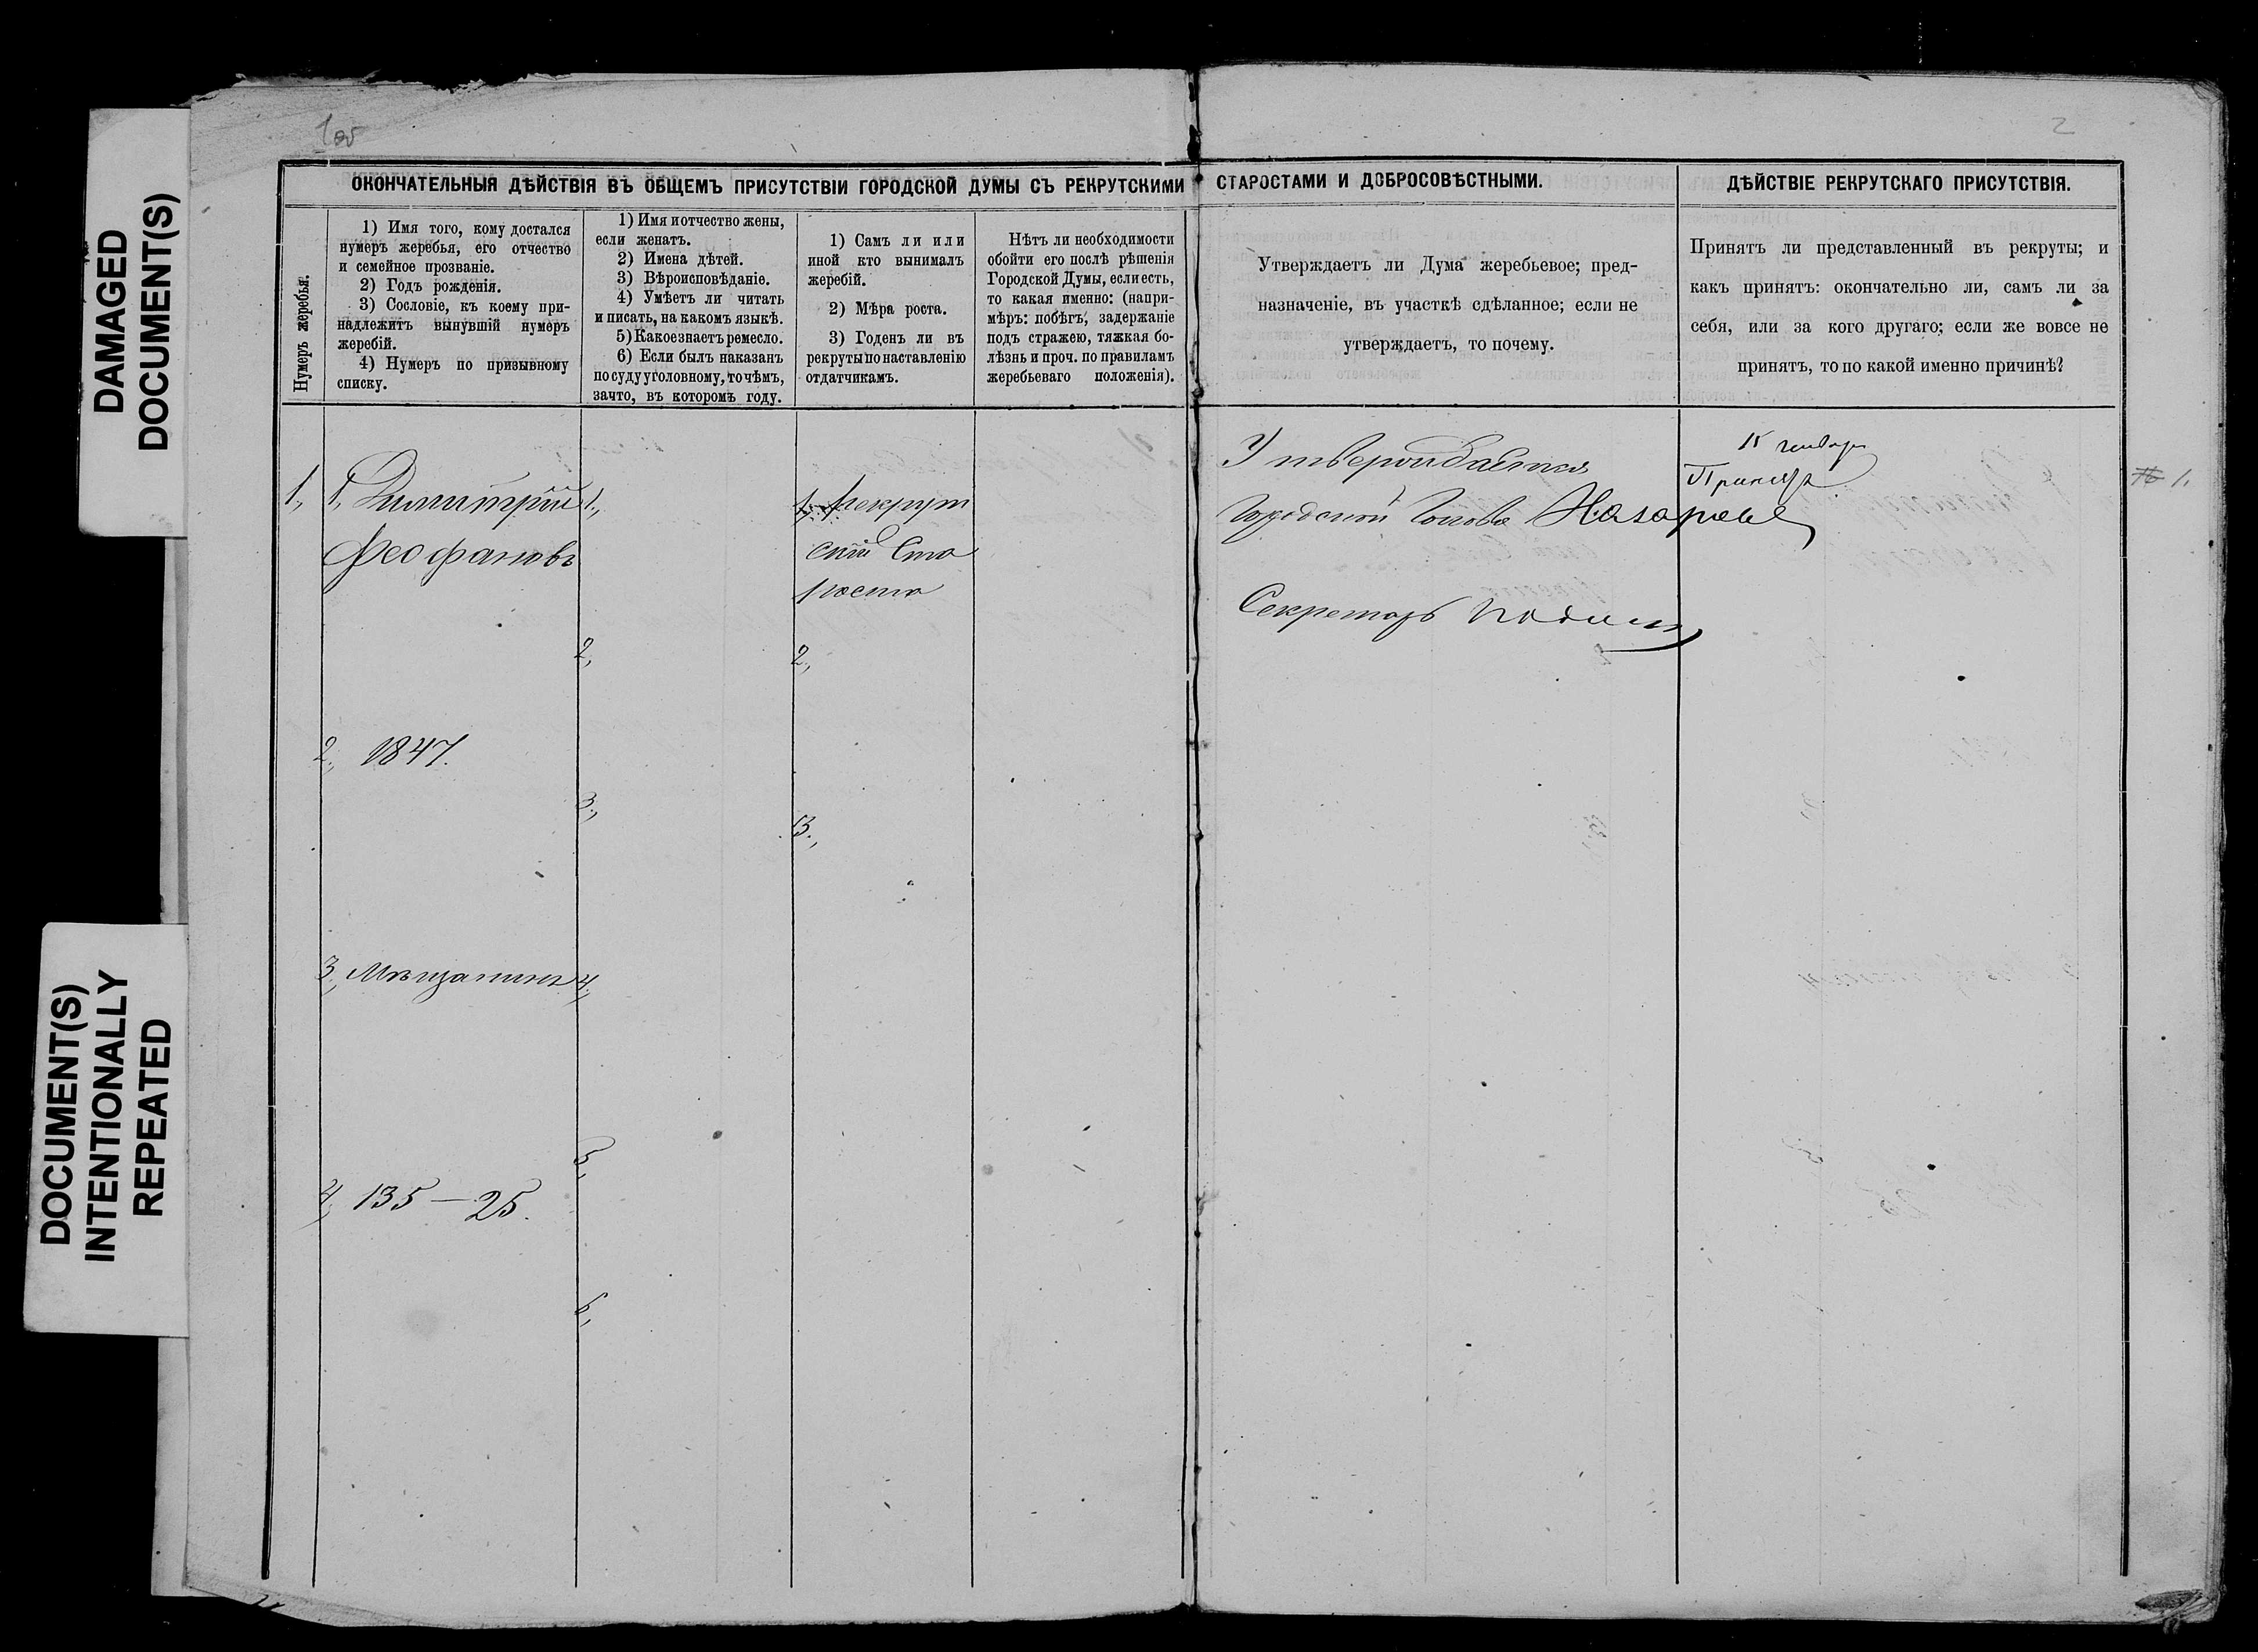 DAMAGED
DOCUMENT(S)
DOCUMENT(S)
INTENTIONALLY
REPEATED
1 об
2
ОКОНЧАТЕЛЬНЫЯ ДѢЙСТВІЯ ВЪ ОБЩЕМЪ ПРИСУТСТВІИ ГОРОДСКОЙ ДУМЫ СЪ РЕКРУТСКИМИ СТАРОСТАМИ И ДОБРОСОВѢСТНЫМИ.
ДѢЙСТВІЕ РЕКРУТСКАГО ПРИСУТСТВІЯ.
Нумеръ жеребья.
1) Имя того, кому достался
нумеръ жеребья, его отчество
и семейное прозваніе.
2) Годъ рожденія.
3) Сословіе, къ коему при-
надлежитъ вынувшій нумеръ
жеребій.
4) Нумеръ по призывному
списку.
1) Имя и отчество жены,
если женатъ.
2) Имена дѣтей.
3) Вѣроисповѣданіе.
4) Умѣетъ ли читать
и писать, на какомъ языкѣ.
5) Какое знаетъ ремесло.
6) Если былъ наказанъ
по суду уголовному, то чѣмъ,
за что, въ которомъ году.
1) Самъ ли или
иной кто вынималъ
жеребій.
2) Мѣра роста.
3) Годенъ ли въ
рекруты по наставленію
отдатчикамъ.
Нѣтъ ли необходимости
обойти его послѣ рѣшенія
Городской Думы, если есть,
то какая именно: (напри-
мѣръ: побѣгъ, задержаніе
подъ стражею, тяжкая бо-
лѣзнь и проч. по правиламъ
жеребьеваго положенія).
Утверждаетъ ли Дума жеребьевое; пред-
назначеніе, въ участкѣ сдѣланное; если не
утверждаетъ, то почему.
Принятъ ли представленный въ рекруты; и
какъ принятъ: окончательно ли, самъ ли за
себя, или за кого другаго; если же вовсе не
принятъ, то по какой именно причинѣ?
1., 1, Димитрій
Феофановъ
2., 1847.
3., Мѣщанинъ
4, 135 — 25.
1.,
2,
3.,
4.,
5.,
6.,
1, рекрут
скій Ста
роста
2.,
3.,
Утверждается
Городской Голова Назаровъ
Секретарь
15 января
Принятъ
1.